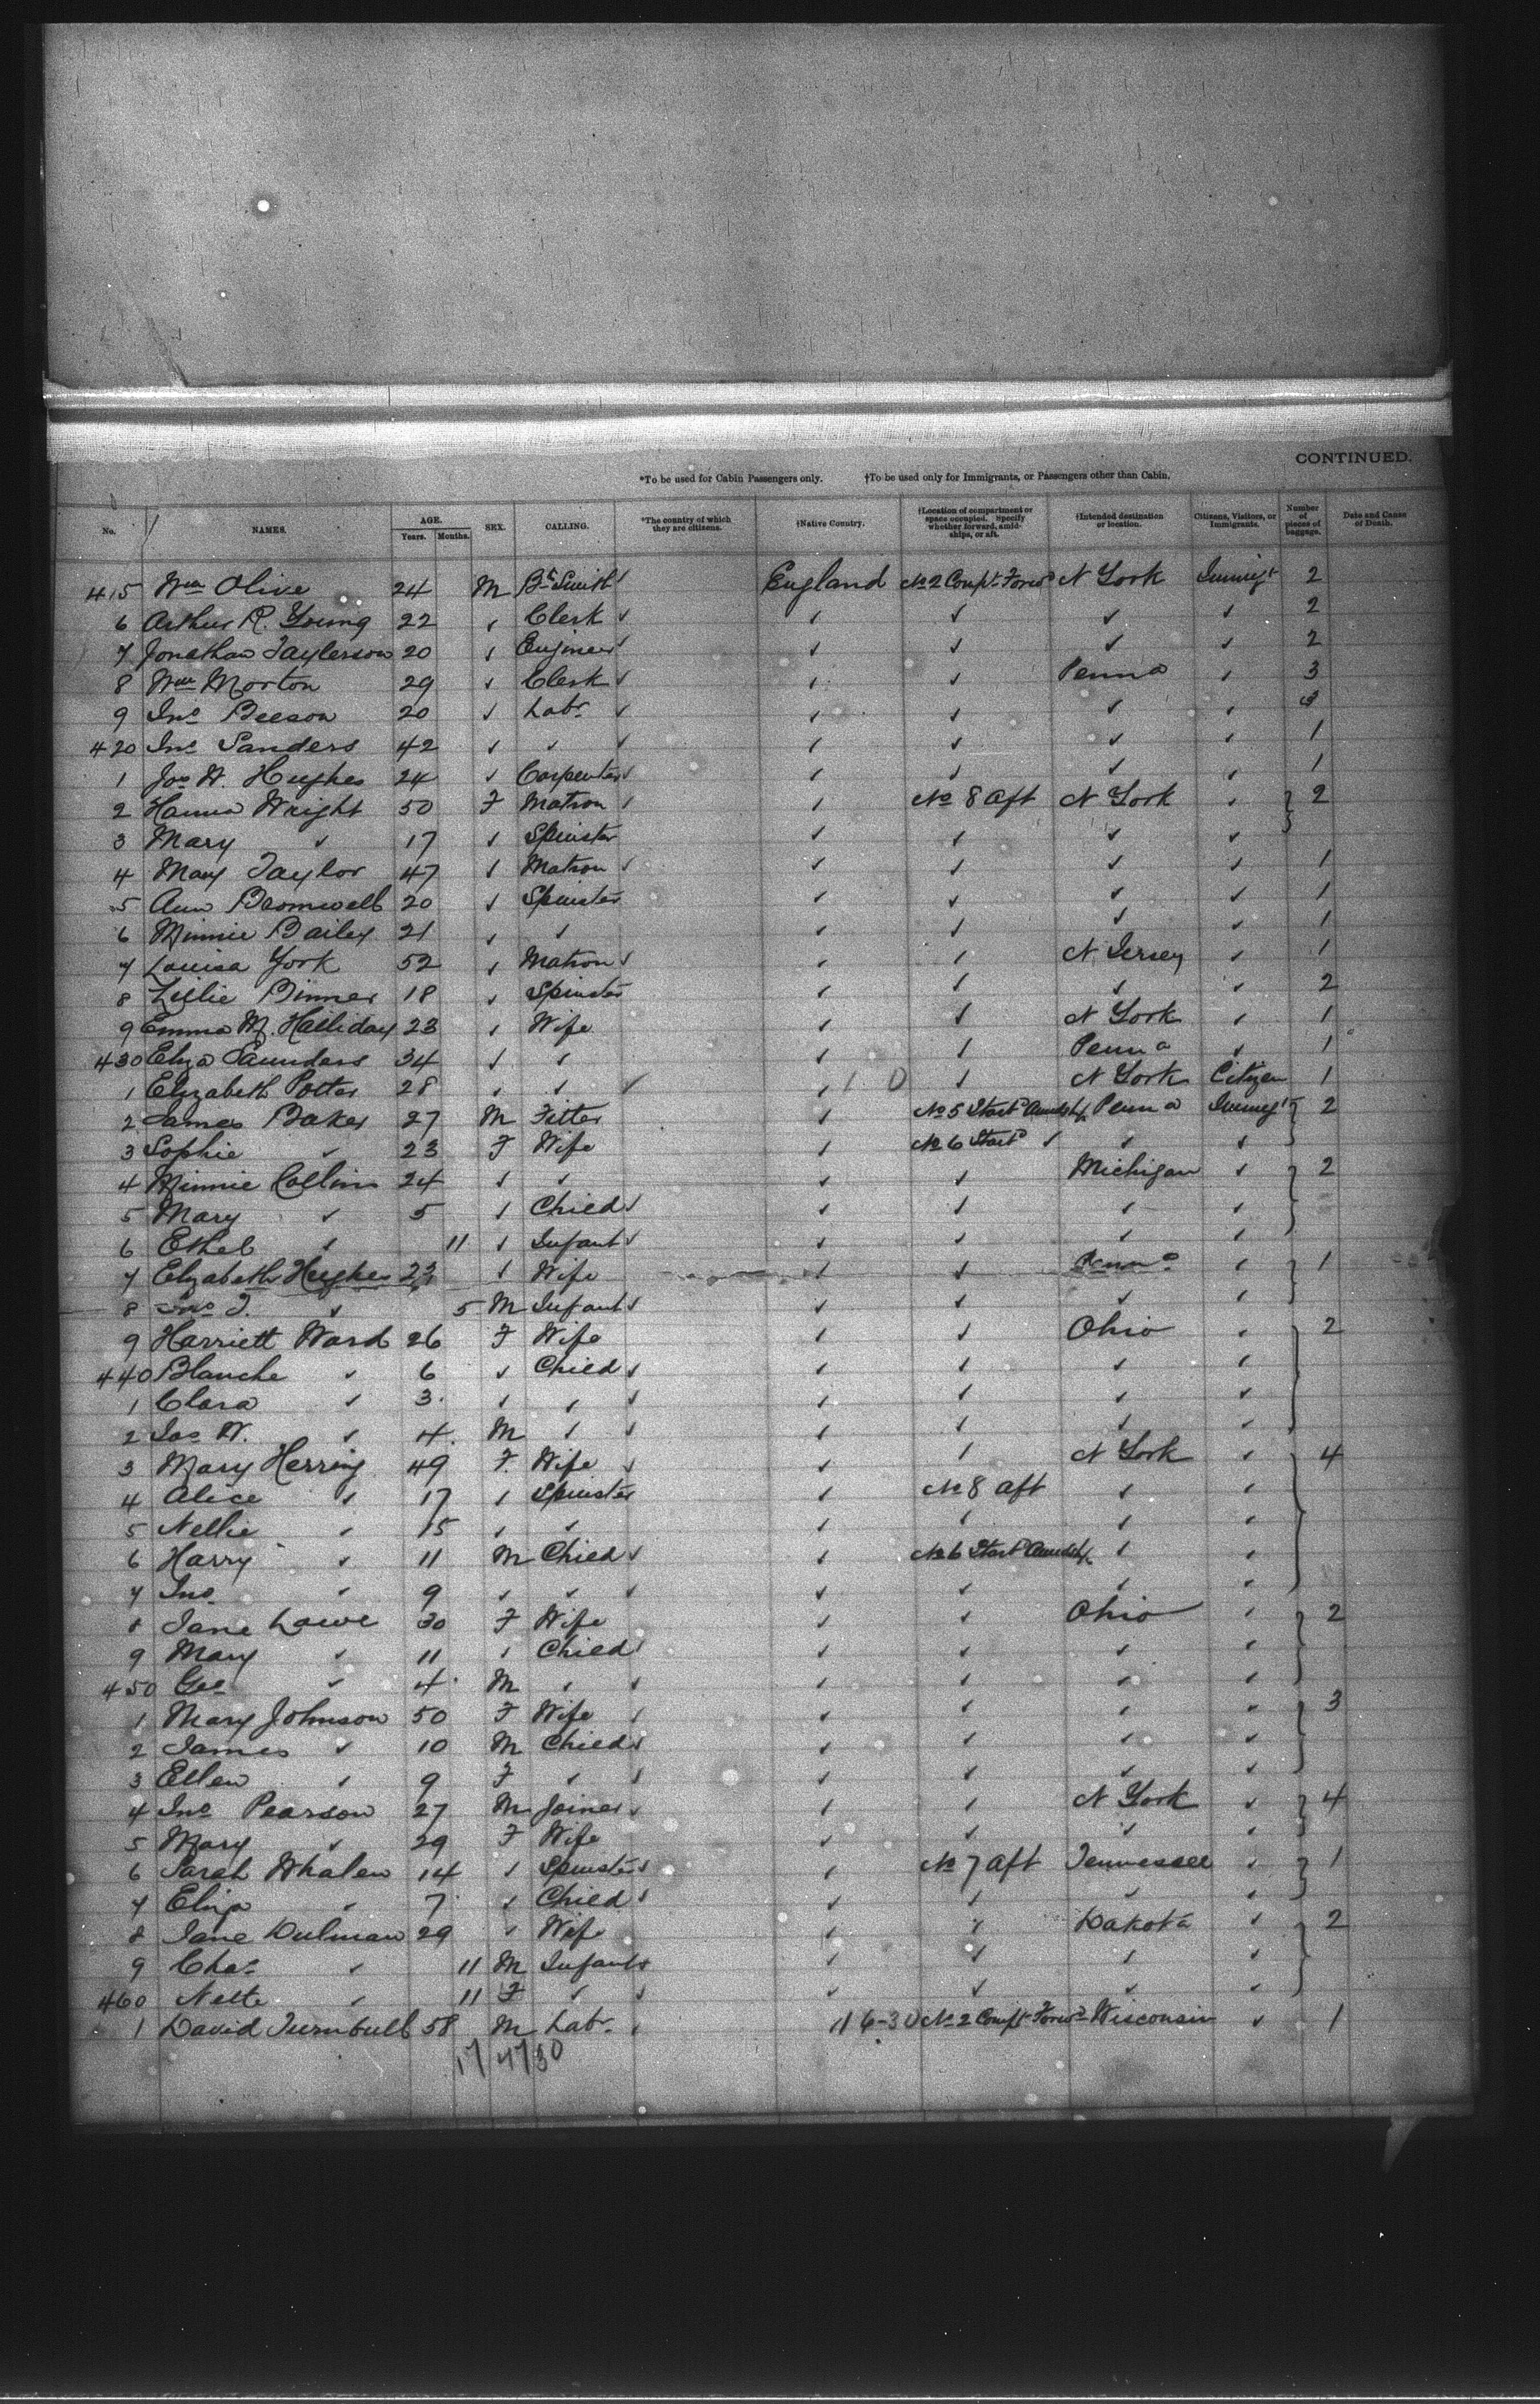 CONTINUED.
*To be used for Cabin Passengers only. †To be used only for Immigrants, or Passengers other than Cabin.
No. NAMES. AGE. Years. Months. SEX. CALLING. *The country of which they are citizens. †Native Country. †Location of compartment or space occupied. Specify whether forward, amidships, or aft. †Intended destination or location. Citizens, Visitors, or Immigrants. Number of pieces of baggage. Date and Cause of Death.
415 Wm Olive 24 M Bk Smith ✓ England No 2 Compt Forwd N York Immigt 2
6 Arthur R. Young 22 ✓ Clerk ✓ ✓ ✓ ✓ ✓ 2
7 Jonathan Taylerson 20 ✓ Engineer ✓ ✓ ✓ ✓ ✓ 2
8 Wm Morton 29 ✓ Clerk ✓ ✓ ✓ Penna ✓ 3
9 Jno Beeson 20 ✓ Labr ✓ ✓ ✓ ✓ ✓ 3
420 Jno Sanders 42 ✓ ✓ ✓ ✓ ✓ ✓ ✓ 1
1 Jos W. Hughes 24 ✓ Carpenter ✓ ✓ ✓ ✓ ✓ 1
2 Hanna Wright 50 F Matron ✓ ✓ No 8 Aft N York ✓ 2
3 Mary ✓ 17 ✓ Spinster ✓ ✓ ✓ ✓
4 Mary Taylor 47 ✓ Matron ✓ ✓ ✓ ✓ ✓ 1
5 Ann Bromwell 20 ✓ Spinster ✓ ✓ ✓ ✓ 1
6 Minnie Bailey 21 ✓ ✓ ✓ ✓ ✓ ✓ 1
7 Louisa York 52 ✓ Matron ✓ ✓ ✓ N. Jersey ✓ 1
8 Lillie Binner 18 ✓ Spinster ✓ ✓ ✓ ✓ 2
9 Emma M. Halliday 23 ✓ Wife ✓ ✓ N York ✓ 1
430 Eliza Saunders 34 ✓ ✓ ✓ ✓ Penna ✓ 1
1 Elizabeth Potter 28 ✓ ✓ ✓ ✓ 1 0 ✓ N York Citizen 1
2 James Baker 27 M Fitter ✓ No 5 Starbd Amidsh. Penna Immigt 2
3 Sophie ✓ 23 F Wife ✓ No 6 Starbd ✓ ✓ ✓
4 Minnie Collins 24 ✓ ✓ ✓ ✓ Michigan ✓ 2
5 Mary ✓ 5 ✓ Child ✓ ✓ ✓ ✓ ✓
6 Ethel ✓ 11 ✓ Infant ✓ ✓ ✓ ✓ ✓
7 Elizabeth Hughes 23 ✓ Wife ✓ ✓ Penna ✓ 1
8 Jno J. ✓ 5 M Infant ✓ ✓ ✓ ✓ ✓
9 Harriett Ward 26 F Wife ✓ ✓ Ohio ✓ 2
440 Blanche ✓ 6 ✓ Child ✓ ✓ ✓ ✓ ✓
1 Clara ✓ 3 ✓ ✓ ✓ ✓ ✓ ✓ ✓
2 Jas W. ✓ 4 M ✓ ✓ ✓ ✓ ✓ ✓
3 Mary Herring 49 F Wife ✓ ✓ ✓ N York ✓ 4
4 Alice ✓ 17 ✓ Spinster ✓ No 8 Aft ✓ ✓
5 Nellie ✓ 15 ✓ ✓ ✓ ✓ ✓ ✓
6 Harry ✓ 11 M Child ✓ ✓ No 6 Starbd Amidsh. ✓ ✓
7 Jno ✓ 9 ✓ ✓ ✓ ✓ ✓ ✓ ✓
8 Jane Lowe 30 F Wife ✓ ✓ Ohio ✓ 2
9 Mary ✓ 11 ✓ Child ✓ ✓ ✓ ✓ ✓
450 Geo ✓ 4 M ✓ ✓ ✓ ✓ ✓ ✓
1 Mary Johnson 50 F Wife ✓ ✓ ✓ ✓ ✓ 3
2 James ✓ 10 M Child ✓ ✓ ✓ ✓ ✓
3 Ellen ✓ 9 F ✓ ✓ ✓ ✓ ✓ ✓
4 Jno Pearson 27 M Joiner ✓ ✓ ✓ N York ✓ 4
5 Mary ✓ 29 F Wife ✓ ✓ ✓ ✓
6 Sarah Whalen 14 ✓ Spinster ✓ ✓ No 7 Aft Tennessee ✓ 1
7 Eliza ✓ 7 ✓ Child ✓ ✓ ✓ ✓ ✓
8 Jane Dulman 29 ✓ Wife ✓ ✓ Dakota ✓ 2
9 Chas ✓ 11 M Infant ✓ ✓ ✓ ✓ ✓
460 Nette ✓ 11 F ✓ ✓ ✓ ✓ ✓ ✓
1 David Turnbull 58 M Labr ✓ 16-30 No 2 Compt Forwd Wisconsin ✓ 1
17 47 30